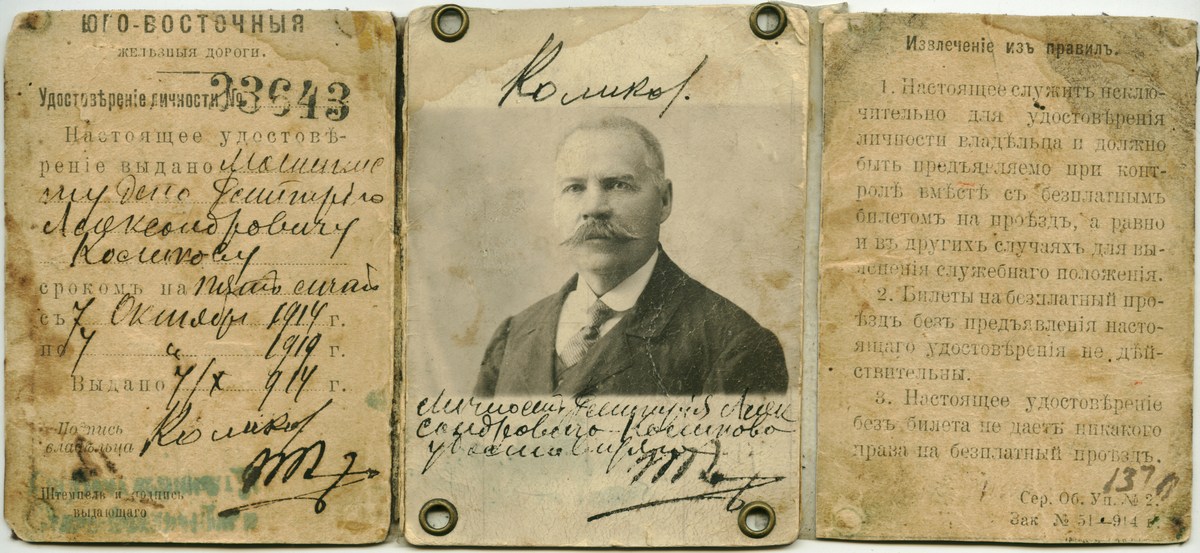 ЮГО-ВОСТОЧНЫЯ
ЖЕЛѢЗНЫЯ ДОРОГИ.
Удостовѣреніе личности № 33643
Настоящее удостовѣ-
реніе выдано
Дмитрію
Александровичу
Коликову
срокомъ на пять
съ 7 Октября 1914 г.
по 7 " 1919 г.
Выдано 7/X 914 г.
Подпись
владѣльца
Коликов
Штемпель и подпись
выдающаго
Коликов.
Личность Дмитрія Алек
сандровича Коликова
удостовѣряю
Извлеченіе изъ правилъ.
1. Настоящее служитъ исклю-
чительно для удостовѣренія
личности владѣльца и должно
быть предъявляемо при конт-
ролѣ вмѣстѣ съ безплатнымъ
билетомъ на проѣздъ, а равно
и въ другихъ случаяхъ для вы-
ясненія служебнаго положенія.
2. Билеты на безплатный про-
ѣздъ безъ предъявленія насто-
ящаго удостовѣренія не дѣй-
ствительны.
3. Настоящее удостовѣреніе
безъ билета не даетъ никакого
права на безплатный проѣздъ.
Сер. Об. Уп. № 2.
Зак. № 51—914 г.